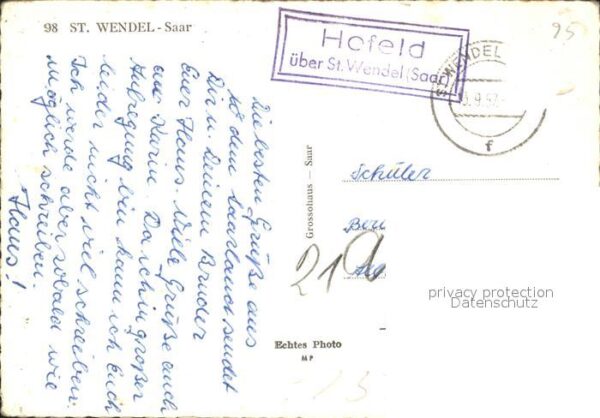 98 ST. WENDEL - Saar
Hofeld
über St. Wendel (Saar)
ST. WENDEL
9.57
f
95
Die besten Grüße aus
dem Saarland sendet
Dir u. Deinem Bruder
Euer Hans. Viele Grüße auch
an Karin. Da ich in großer
Aufregung bin kann ich Euch
leider nicht viel schreiben.
Ich werde aber sobald wie
möglich schreiben.
Hans!
Grossohaus — Saar
Echtes Photo
MP
Schüler
21
privacy protection
Datenschutz